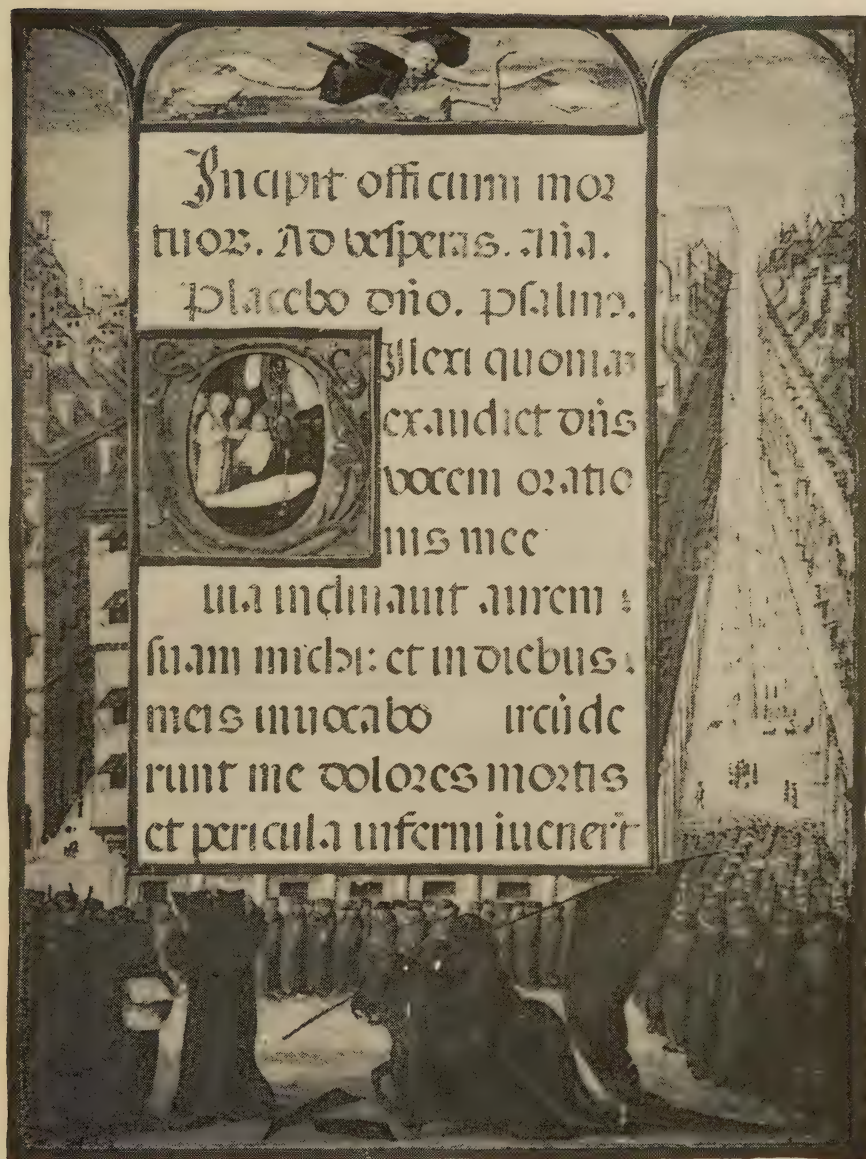 Incipit officium mor
tuor. Ad vesperas. Aña.
Placebo dño. Psalmꝰ.
Dilexi quoniaȝ
exaudiet dñs
vocem oratio
nis mee
uia inclinauit aurem
suam michi: et in diebus
meis inuocabo ircūde
runt me dolores mortis
et pericula inferni iuenerūt